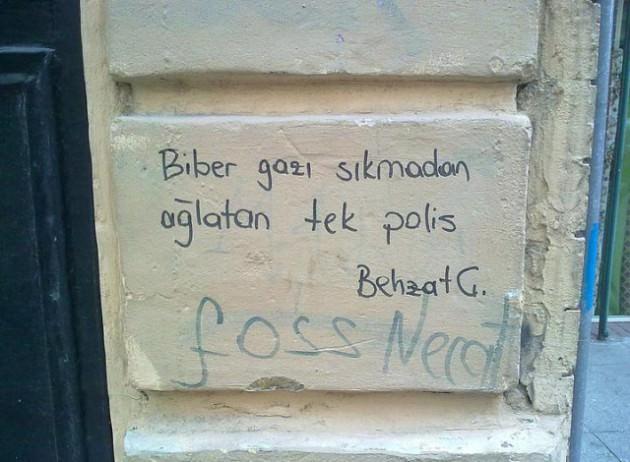 Biber gazı sıkmadan
ağlatan tek polis
Behzat Ç.
foss Necat